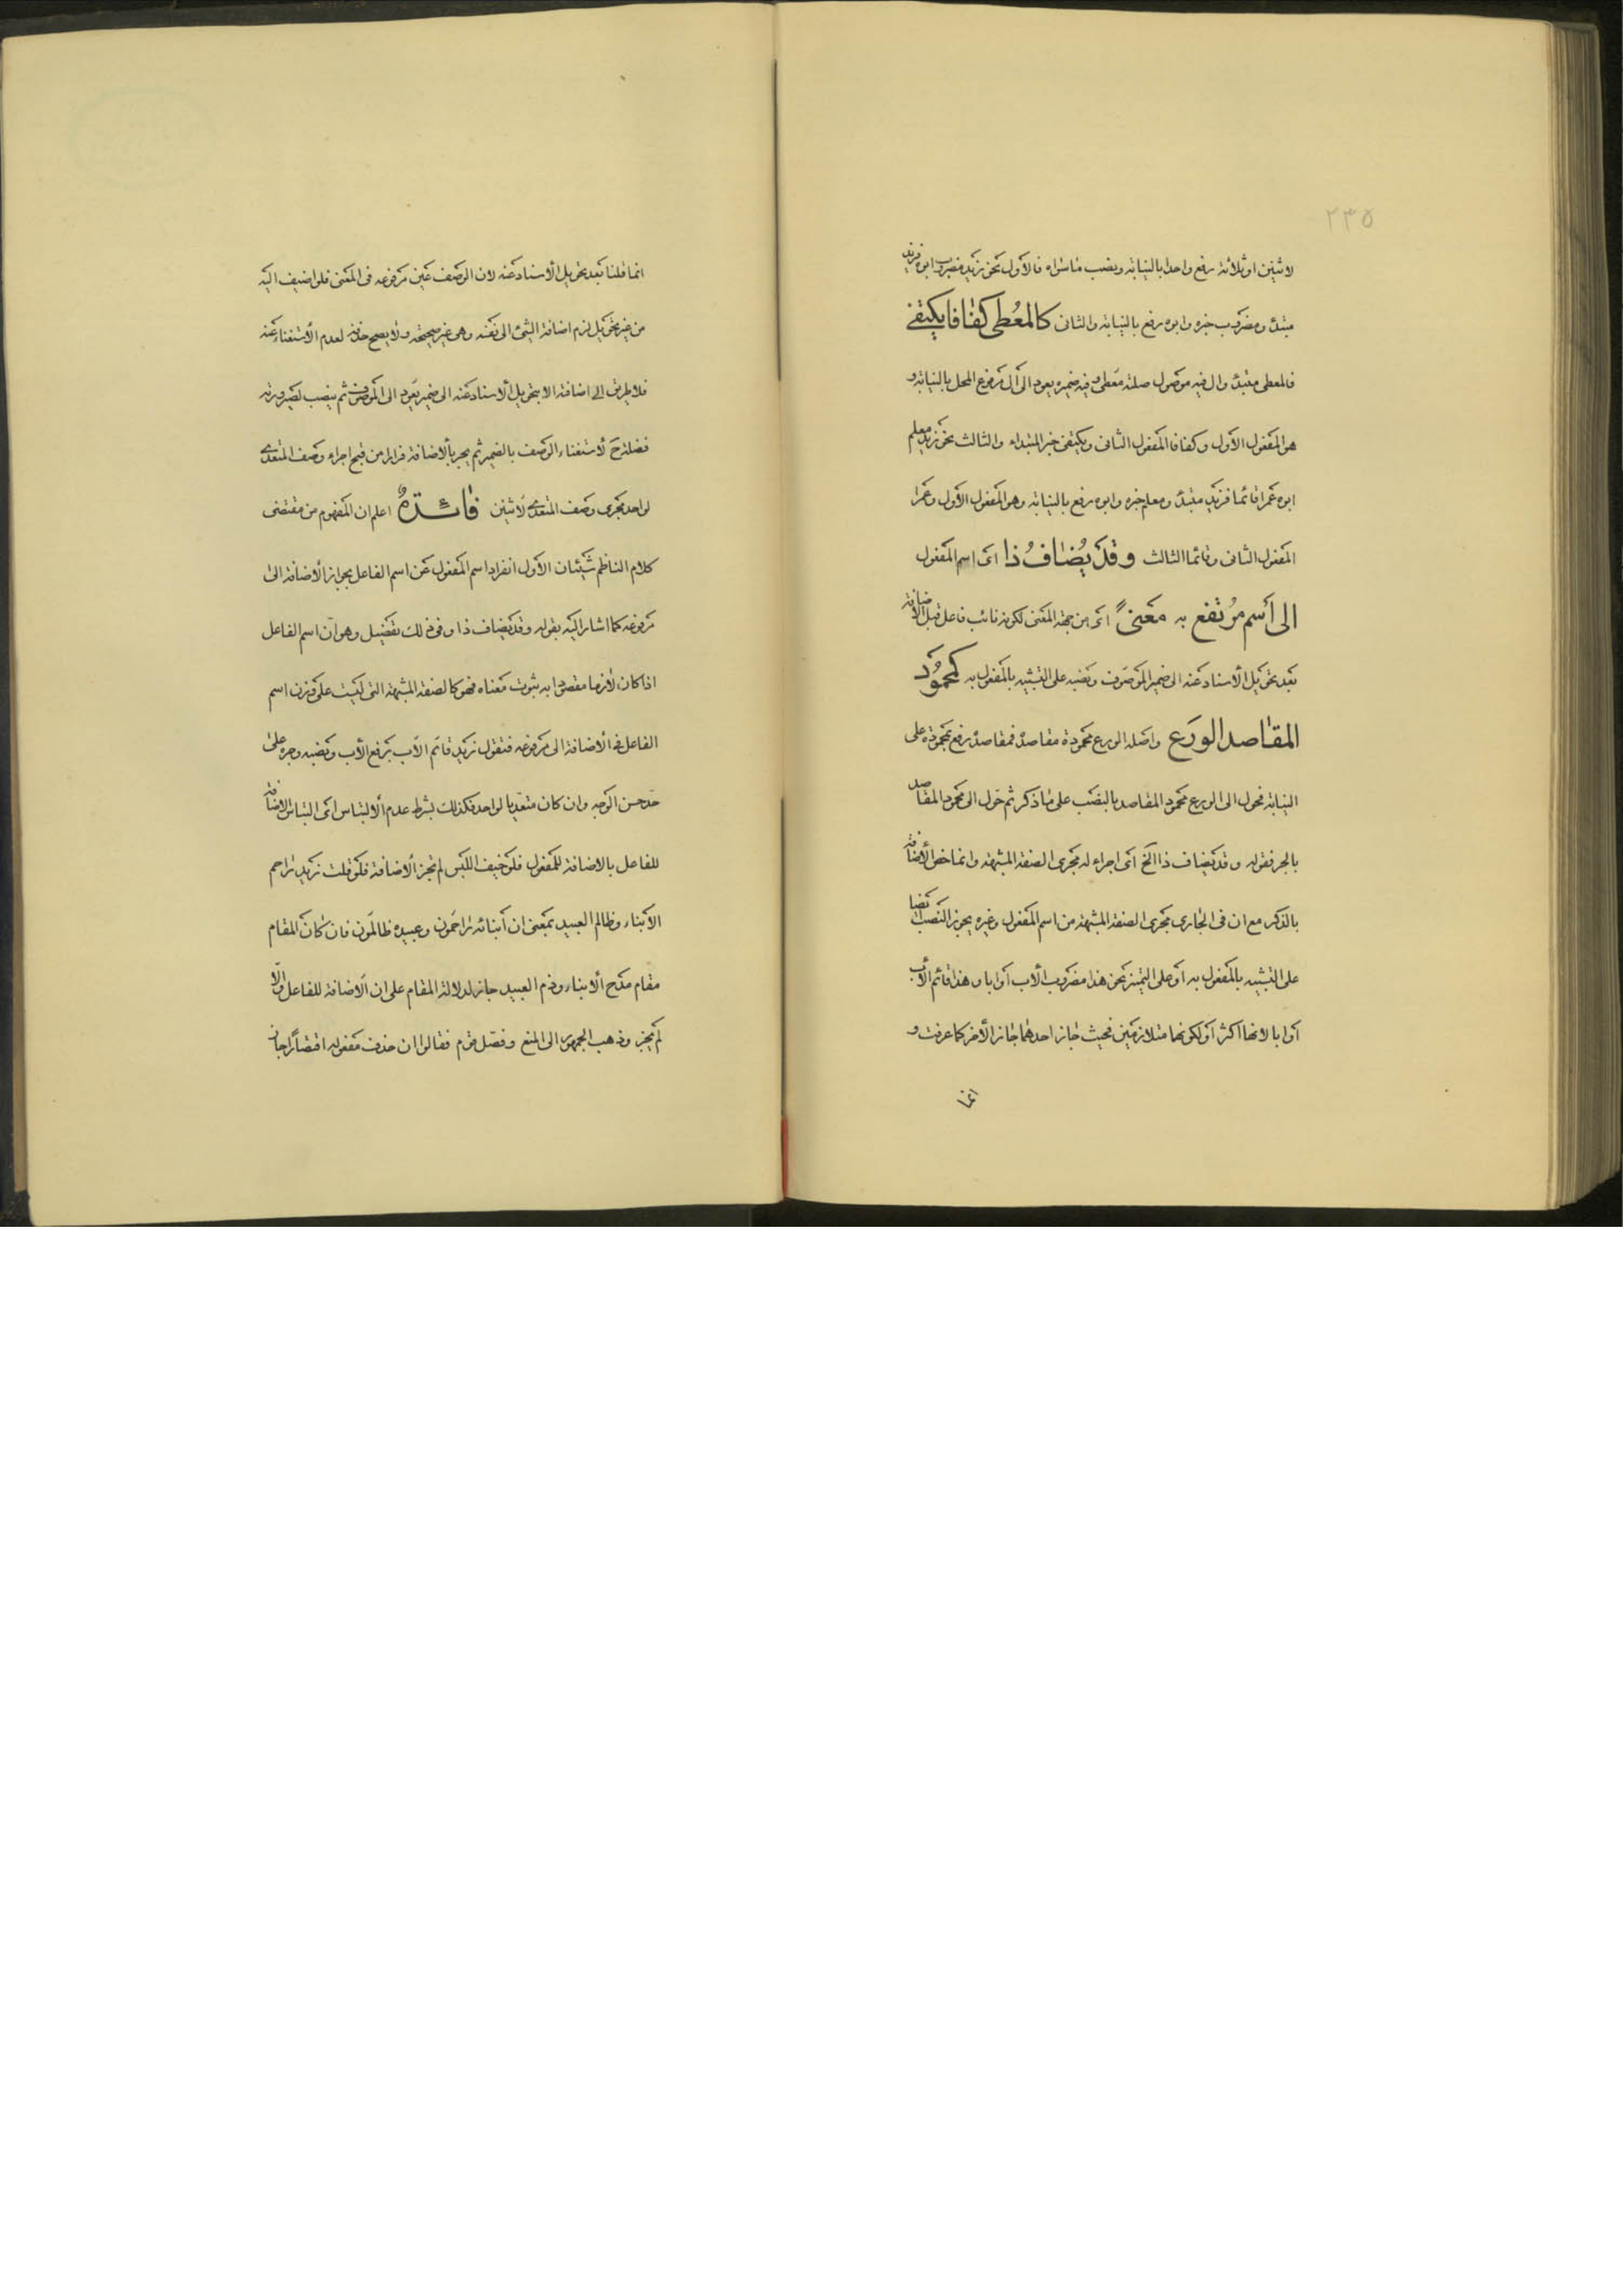 ٢٣٥
لاثنين او ثلاثة رفع واحدا بالنيابة ونصب ما سواه فالاول نحو زيد مضروب ابوه فزيد
مبتدأ ومضروب خبره وابوه رفع بالنيابة والثانى كالمُعْطى كفافا يكتفى
فالمعطى مبتدأ وال فيه موصول صلته معطى وفيه ضمير يعود الى ال مرفوع المحل بالنيابة و
هو المفعول الاول وكفافا المفعول الثانى ويكتفى خبر المبتداء والثالث نحو زيد معلم
ابوه عمرا قائما فزيد مبتدأ ومعلم خبره وابوه رفع بالنيابة وهو المفعول الاول وعمرا
المفعول الثانى وقائما الثالث وقد يُضافُ ذا اى اسم المفعول
الى اسم مُرتفع به معنىً اى من جهة المعنى لكونه نائب فاعل قبل الاضافة
بعد تحويل الاسناد عنه الى ضمير الموصوف ونصبه على التشبيه بالمفعول به كمحمُود
المقاصد الورع واصله الورع محمودة مقاصدُه فمقاصدُه رفع بمحمودة على
النيابة فحول الى الورع محمود المقاصد بالنصب على ما ذكر ثم حول الى محمود المقاصد
بالجر فقوله وقد يضاف ذا الخ اى اجراء له مجرى الصفة المشبهة وانما خص الاضافة
بالذكر مع ان فى الجارى مجرى الصفة المشبهة من اسم المفعول وغيره يجوز النصب ايضا
على التشبيه بالمفعول به او على التميز نحو هذا مضروب الاب او ابا وهذا قائم الاب
او ابا لانها اكثر او لكونها متلازمين فحيث جاز احدهما جاز الاخر كما عرفت و
انما
انما قلنا بعد تحويل الاسناد عنه لان الوصف عين مرفوعه فى المعنى فلو اضيف اليه
من غير تحويل لزم اضافة الشئ الى نفسه وهى غير صحيحة ولا يصح حذفه لعدم الاستغناء عنه
فلا طريق الى اضافته الا بتحويل الاسناد عنه الى ضمير يعود الى الموصوف ثم ينصب لصيرورته
فضلة ح لاستغناء الوصف بالضمير ثم يجر بالاضافة فرارا من قبح اجراء وصف المتعدى
لواحد مجرى وصف المتعدى لاثنين فائدةٌ اعلم ان المفهوم من مقتضى
كلام الناظم شيئان الاول انفراد اسم المفعول عن اسم الفاعل بجواز الاضافة الى
مرفوعه كما اشار اليه بقوله وقد يضاف ذا وفى ذلك تفصيل وهو ان اسم الفاعل
اذا كان لازما مقصودا به ثبوت معناه فهو كالصفة المشبهة التى ليست على وزن اسم
الفاعل فى الاضافة الى مرفوعه فتقول زيد قائم الاب برفع الاب ونصبه وجره على
حد حسن الوجه وان كان متعديا لواحد فكذلك بشرط عدم الالتباس اى التباس الاضافة
للفاعل بالاضافة للمفعول فلو خيف اللبس لم تجز الاضافة فلو قلت زيد راحم
الابناء وظالم العبيد بمعنى ان ابنائه راحمون وعبيده ظالمون فان كان المقام
مقام مدح الابناء وذم العبيد جاز لدلالة المقام على ان الاضافة للفاعل والا
لم يجز وذهب الجمهور الى المنع وفصل قوم فقالوا ان حذف مفعوله اقتصارا جاز